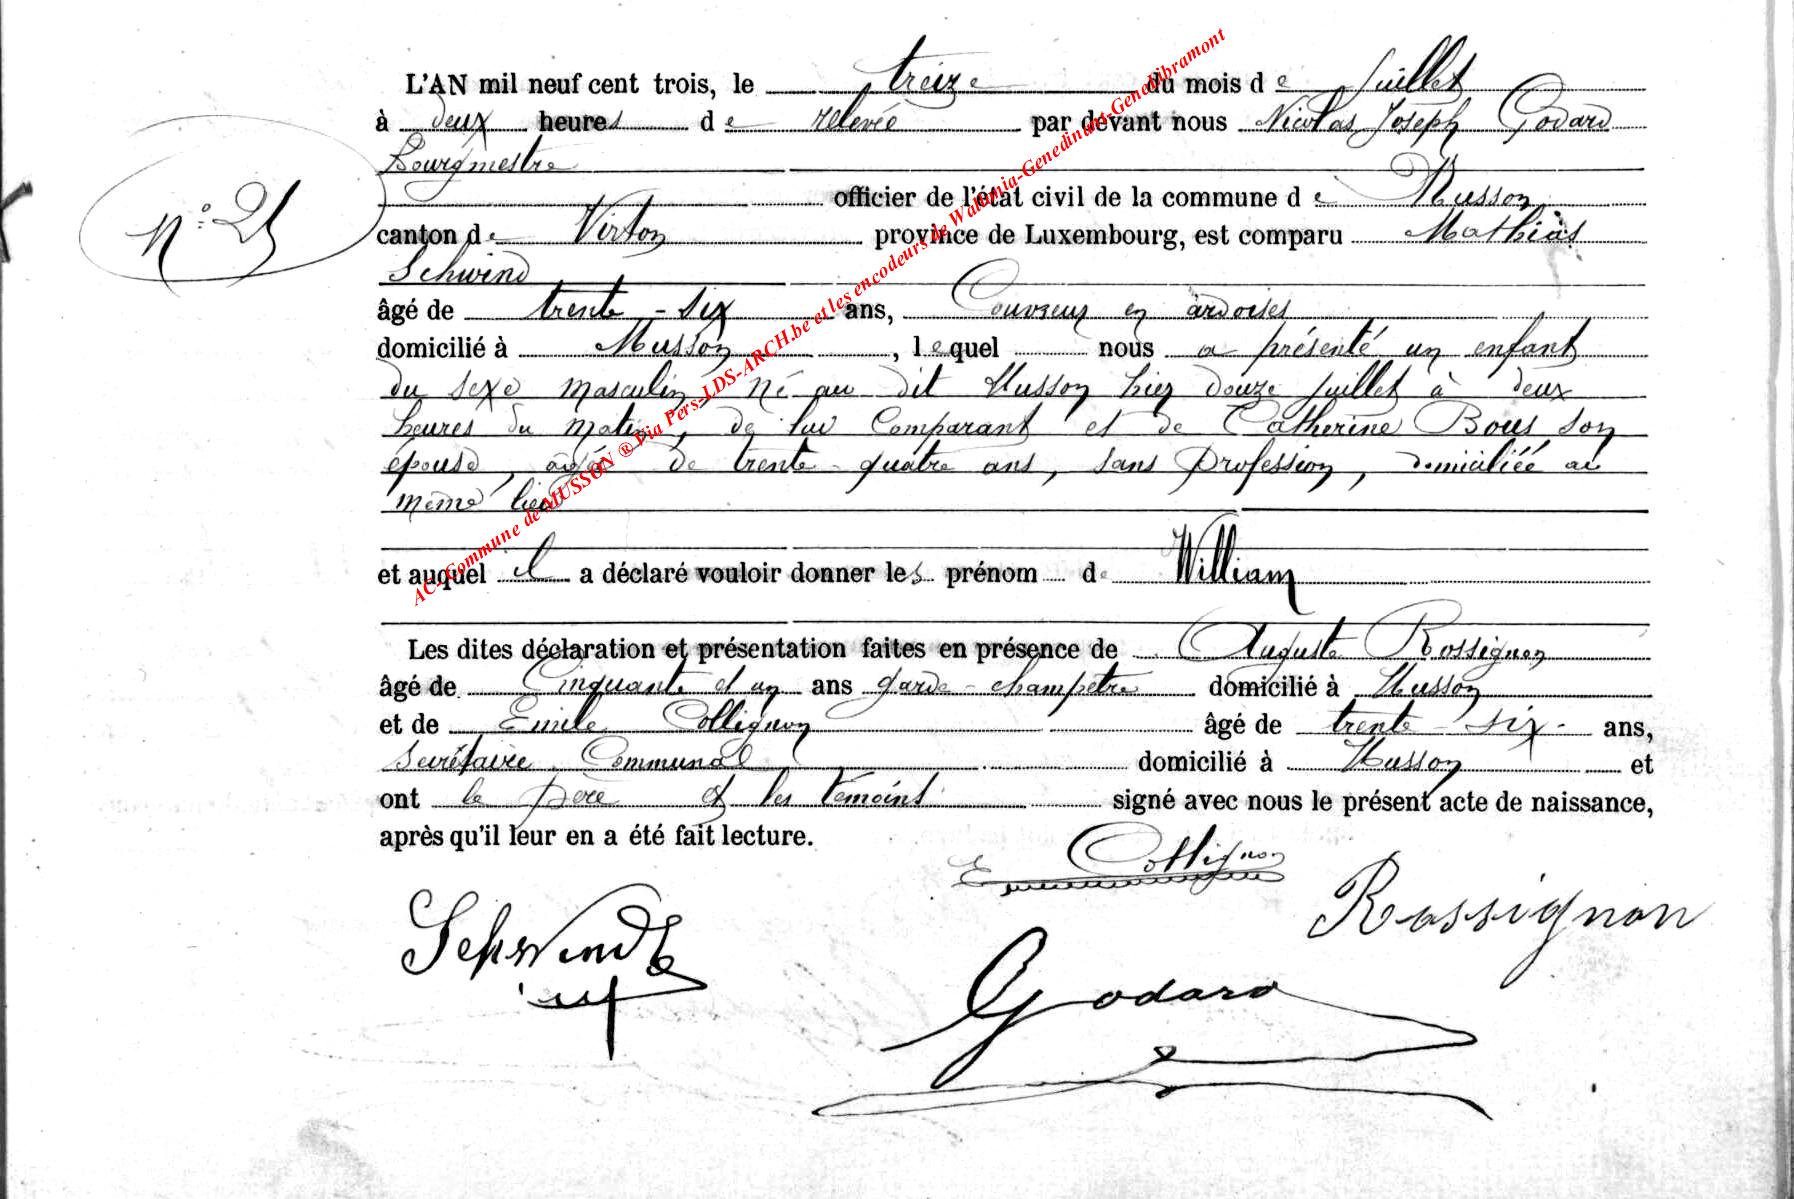 L'AN mil neuf cent trois, le treize du mois de juillet
à deux heures de relevée par devant nous Nicolas Joseph Godard
Bourgmestre
officier de l'état civil de la commune de Musson
N° 25
canton de Virton province de Luxembourg, est comparu Mathias
Schwind
âgé de trente-six ans, Couvreur en ardoises
domicilié à Musson, lequel nous a présenté un enfant
du sexe masculin, né au dit Musson hier douze juillet à deux
heures du matin, de lui Comparant et de Catherine Bous son
épouse, âgée de trente-quatre ans, sans profession, domiciliée au
même lieu
et auquel il a déclaré vouloir donner les prénom de William
Les dites déclaration et présentation faites en présence de Auguste Rossignon
âgé de Cinquante et un ans garde-champêtre domicilié à Musson
et de Emile Collignon âgé de trente-six- ans,
Secrétaire Communal domicilié à Musson et
ont le père et les témoins signé avec nous le présent acte de naissance,
après qu'il leur en a été fait lecture.
E Collignon
Rossignon
Schwindt
Godard
AC-Commune de MUSSON ® Via Pers-LDS-ARCH.be et les encodeurs de Wallonia-Genedinant-Genelibramont